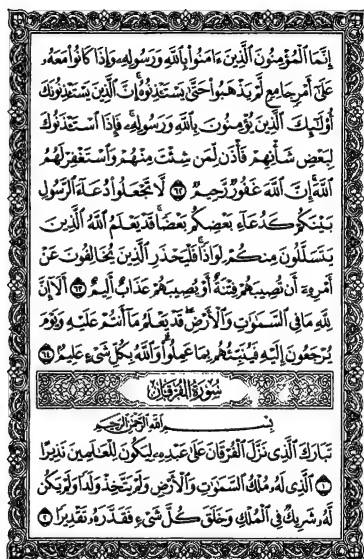 إِنَّمَا ٱلْمُؤْمِنُونَ ٱلَّذِينَ ءَامَنُوا۟ بِٱللَّهِ وَرَسُولِهِۦ وَإِذَا كَانُوا۟ مَعَهُۥ
عَلَىٰٓ أَمْرٍ جَامِعٍ لَّمْ يَذْهَبُوا۟ حَتَّىٰ يَسْتَـْٔذِنُوهُ ۚ إِنَّ ٱلَّذِينَ يَسْتَـْٔذِنُونَكَ
أُو۟لَـٰٓئِكَ ٱلَّذِينَ يُؤْمِنُونَ بِٱللَّهِ وَرَسُولِهِۦ ۚ فَإِذَا ٱسْتَـْٔذَنُوكَ
لِبَعْضِ شَأْنِهِمْ فَأْذَن لِّمَن شِئْتَ مِنْهُمْ وَٱسْتَغْفِرْ لَهُمُ
ٱللَّهَ ۚ إِنَّ ٱللَّهَ غَفُورٌ رَّحِيمٌ ٦٢ لَّا تَجْعَلُوا۟ دُعَآءَ ٱلرَّسُولِ
بَيْنَكُمْ كَدُعَآءِ بَعْضِكُم بَعْضًا ۚ قَدْ يَعْلَمُ ٱللَّهُ ٱلَّذِينَ
يَتَسَلَّلُونَ مِنكُمْ لِوَاذًا ۚ فَلْيَحْذَرِ ٱلَّذِينَ يُخَالِفُونَ عَنْ
أَمْرِهِۦٓ أَن تُصِيبَهُمْ فِتْنَةٌ أَوْ يُصِيبَهُمْ عَذَابٌ أَلِيمٌ ٦٣ أَلَآ إِنَّ
لِلَّهِ مَا فِى ٱلسَّمَـٰوَٰتِ وَٱلْأَرْضِ ۖ قَدْ يَعْلَمُ مَآ أَنتُمْ عَلَيْهِ وَيَوْمَ
يُرْجَعُونَ إِلَيْهِ فَيُنَبِّئُهُم بِمَا عَمِلُوا۟ ۗ وَٱللَّهُ بِكُلِّ شَىْءٍ عَلِيمٌۢ ٦٤
سُورَةُ الْفُرْقَانِ
بِسْمِ ٱللَّهِ ٱلرَّحْمَـٰنِ ٱلرَّحِيمِ
تَبَارَكَ ٱلَّذِى نَزَّلَ ٱلْفُرْقَانَ عَلَىٰ عَبْدِهِۦ لِيَكُونَ لِلْعَـٰلَمِينَ نَذِيرًا
١ ٱلَّذِى لَهُۥ مُلْكُ ٱلسَّمَـٰوَٰتِ وَٱلْأَرْضِ وَلَمْ يَتَّخِذْ وَلَدًا وَلَمْ يَكُن
لَّهُۥ شَرِيكٌ فِى ٱلْمُلْكِ وَخَلَقَ كُلَّ شَىْءٍ فَقَدَّرَهُۥ تَقْدِيرًا ٢